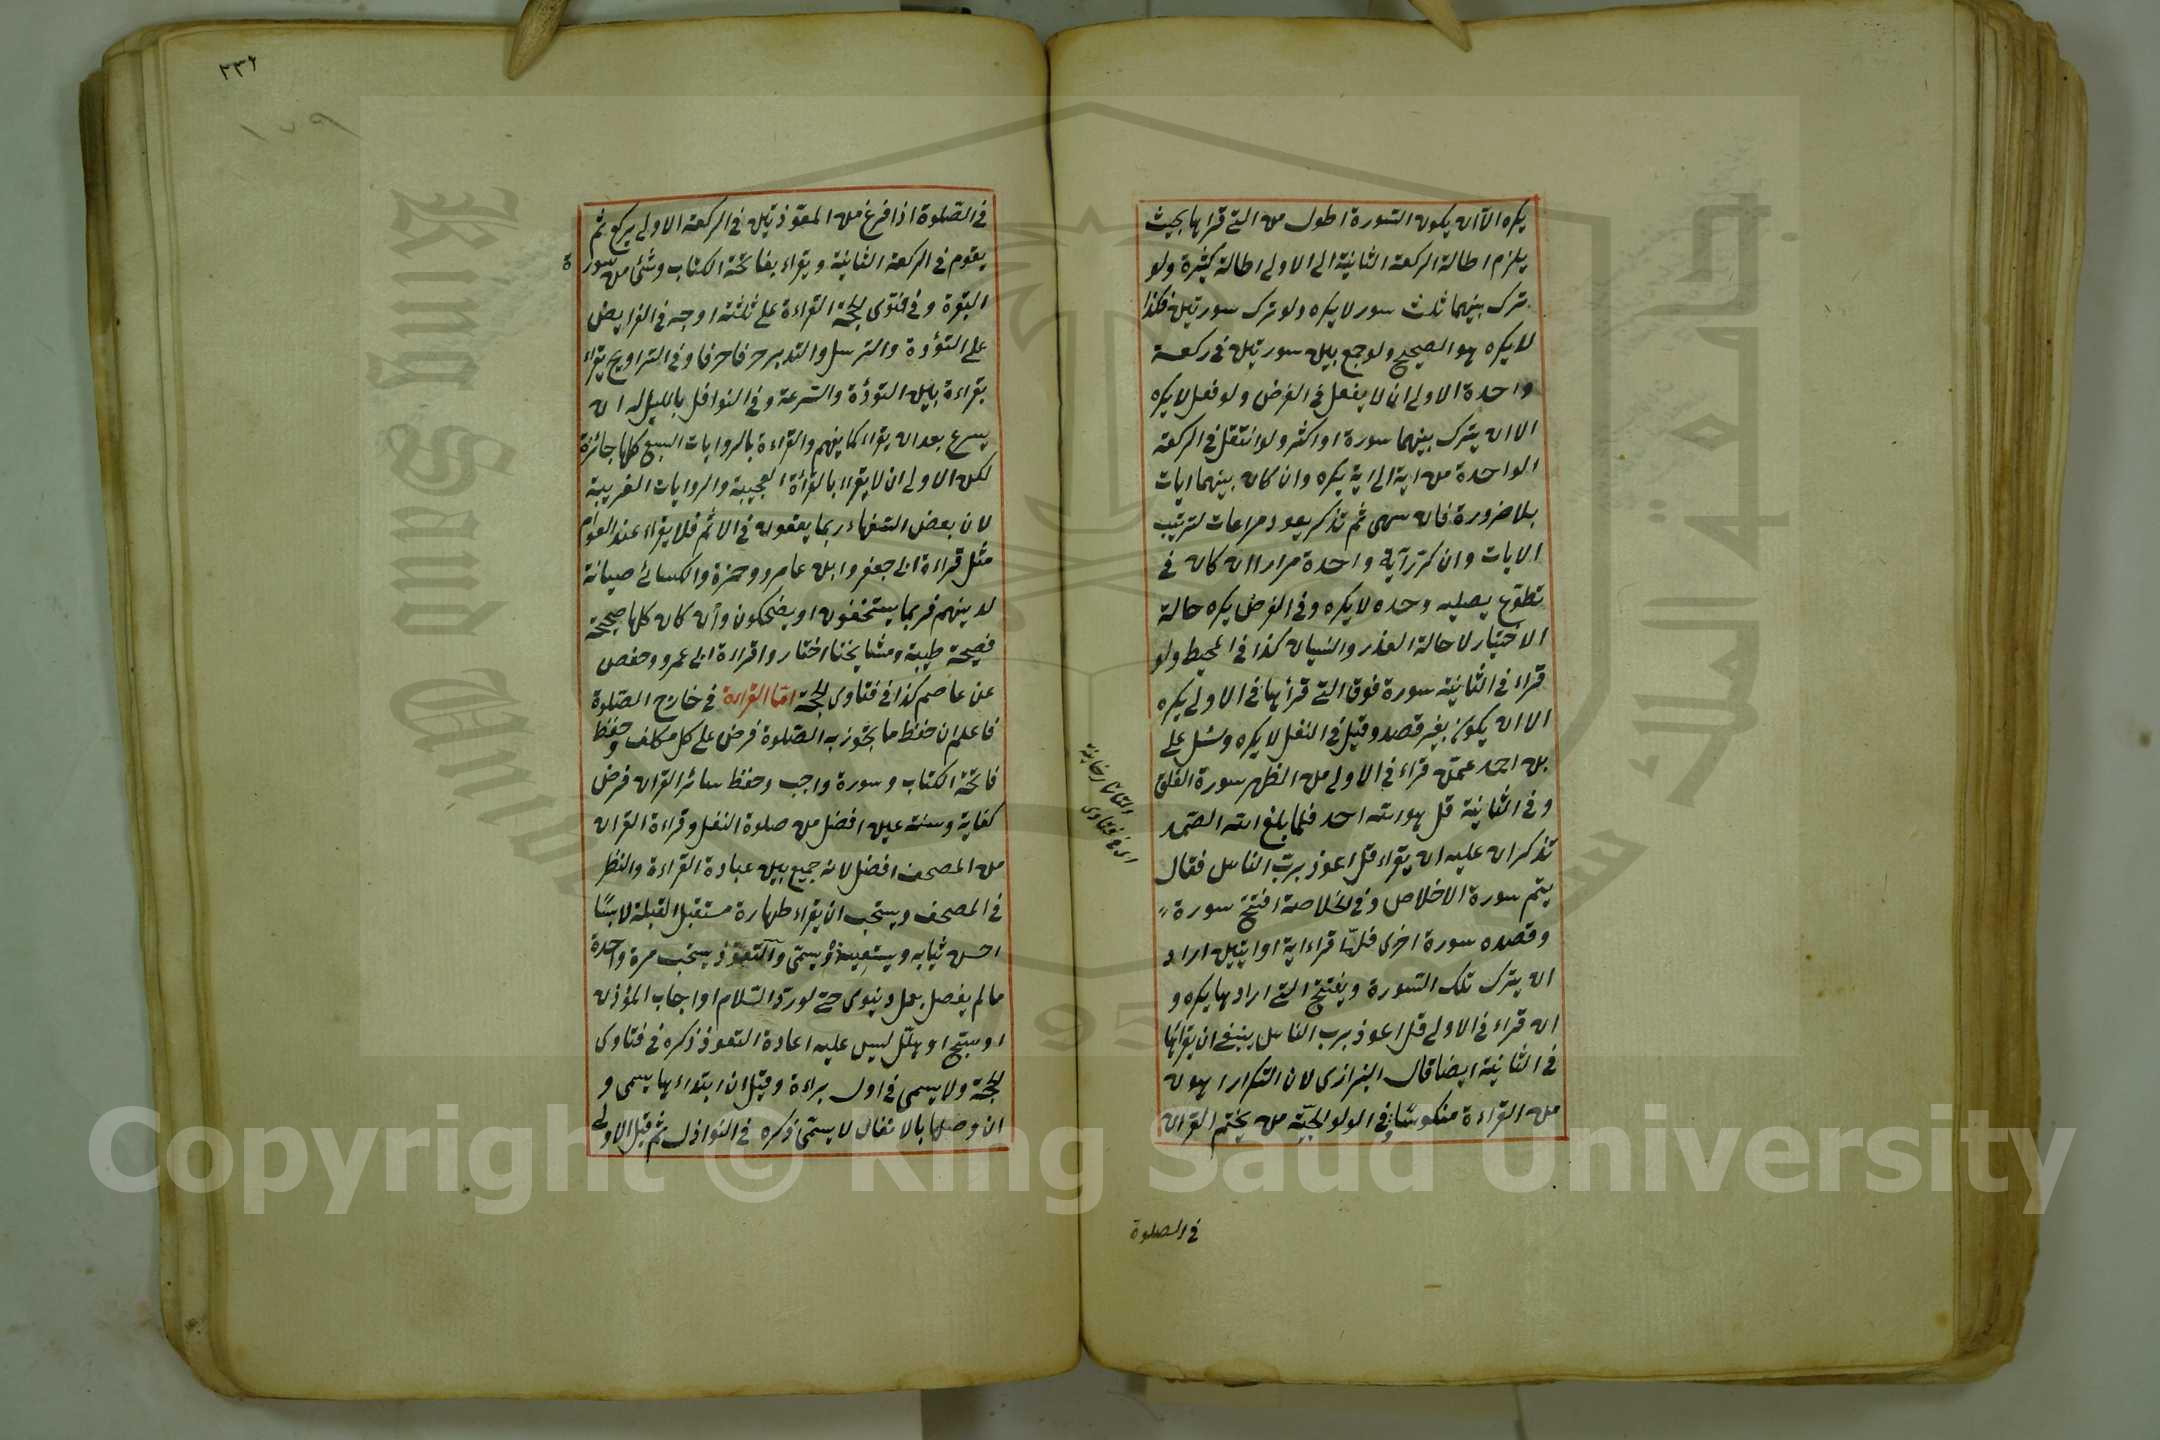 يكره الا ان يكون السورة اطول من التي قراها بحيث
يلزم اطالة الركعة الثانية الى الاولى اطالة كثيرة ولو
ترك بينهما ثلث سور لا يكره ولو ترك سورتين فكذا
لا يكره هو الصحيح ولو جمع بين سورتين في ركعة
واحدة الاولى ان لا يفعل في الفرض ولو فعل لا يكره
الا ان يترك بينهما سورة او اكثر ولو انتقل في الركعة
الواحدة من اية الى اية يكره وان كان بينهما ايات
بلا ضرورة فان سهى ثم تذكر يعود مراعات لترتيب
الايات وان كرر آية واحدة مرارا ان كان في
تطوع يصليه وحده لا يكره وفي الفرض يكره حالة
الاختيار لا حالة العذر والنسيان كذا في المحيط ولو
قراء في الثانية سورة فوق التي قرأها في الاولى يكره
الا ان يكون بغير قصد وقيل في النفل لا يكره وسئل علي
بن احمد عمن قراء في الاولى من الظهر سورة الفلق
وفي الثانية قل هو الله احد فلما بلغ الله الصمد
تذكر ان عليه ان يقراء قل اعوذ برب الناس فقال
يتم سورة الاخلاص وفي الخلاصة افتتح سورة
وقصده سورة اخرى فلما قراء اية او ايتين اراد
ان يترك تلك السورة ويفتتح التي ارادها يكره و
ان قراء في الاولى قل اعوذ برب الناس ينبغي ان يقرائها
في الثانية ايضا قال البزازي لان التكرار اهون
من القراءة منكوسا وفي الولوالجية من يختم القران
في الصلوة
التتارخانية
اي في فتاوى
٢٣٤
١٧٩
في الصلوة اذا فرغ من المعوذتين في الركعة الاولى يركع ثم
يقوم في الركعة الثانية ويقراء بفاتحة الكتاب وشئ من سورة
البقرة وفي فتوى الحجة القراءة على ثلثة اوجه في الفرايض
على التؤدة والترسل والتدبر حرفا حرفا وفي التراويح يقراء
بقراءة بين التؤدة والسرعة وفي النوافل بالليل له ان
يسرع بعد ان يقراء كما يفهم والقراءة بالروايات السبع كلها جائزة
لكن الاولى ان لا يقراء بالقرأة العجيبة والروايات الغريبة
لان بعض السفهاء ربما يقعون في الاثم فلا يقراء عند العوام
مثل قراءة ابي جعفر وابن عامر وحمزة والكسائي صيانة
لدينهم فربما يستخفون او يضحكون وان كان كلها صحيحة
فصيحة طيبة ومشايخنا اختاروا قراءة ابي عمرو وحفص
عن عاصم كذا في فتاوى الحجة اما القراءة في خارج الصلوة
فاعلم ان حفظ ما يجوز به الصلوة فرض على كل مكلف وحفظ
فاتحة الكتاب وسورة واجب وحفظ سائر القران فرض
كفاية وسنة عين افضل من صلوة النفل وقراءة القران
من المصحف افضل لانه جميع بين عبادة القراءة والنظر
في المصحف ويستحب ان يقراء طهارة مستقبل القبلة لابسا
احسن ثيابه ويستعيذ ويسمي والتعوذ يستحب مرة واحدة
ما لم يفصل بعمل دنيوي حتى لو رد السلام او اجاب المؤذن
او سبح او هلل ليس عليه اعادة التعوذ ذكره في فتاوى
الحجة ولا يسمي في اول براءة وقيل ان ابتداء بها يسمي و
ان وصلها بالانفال لا يسمي ذكره في النوازل ثم قيل الاولى